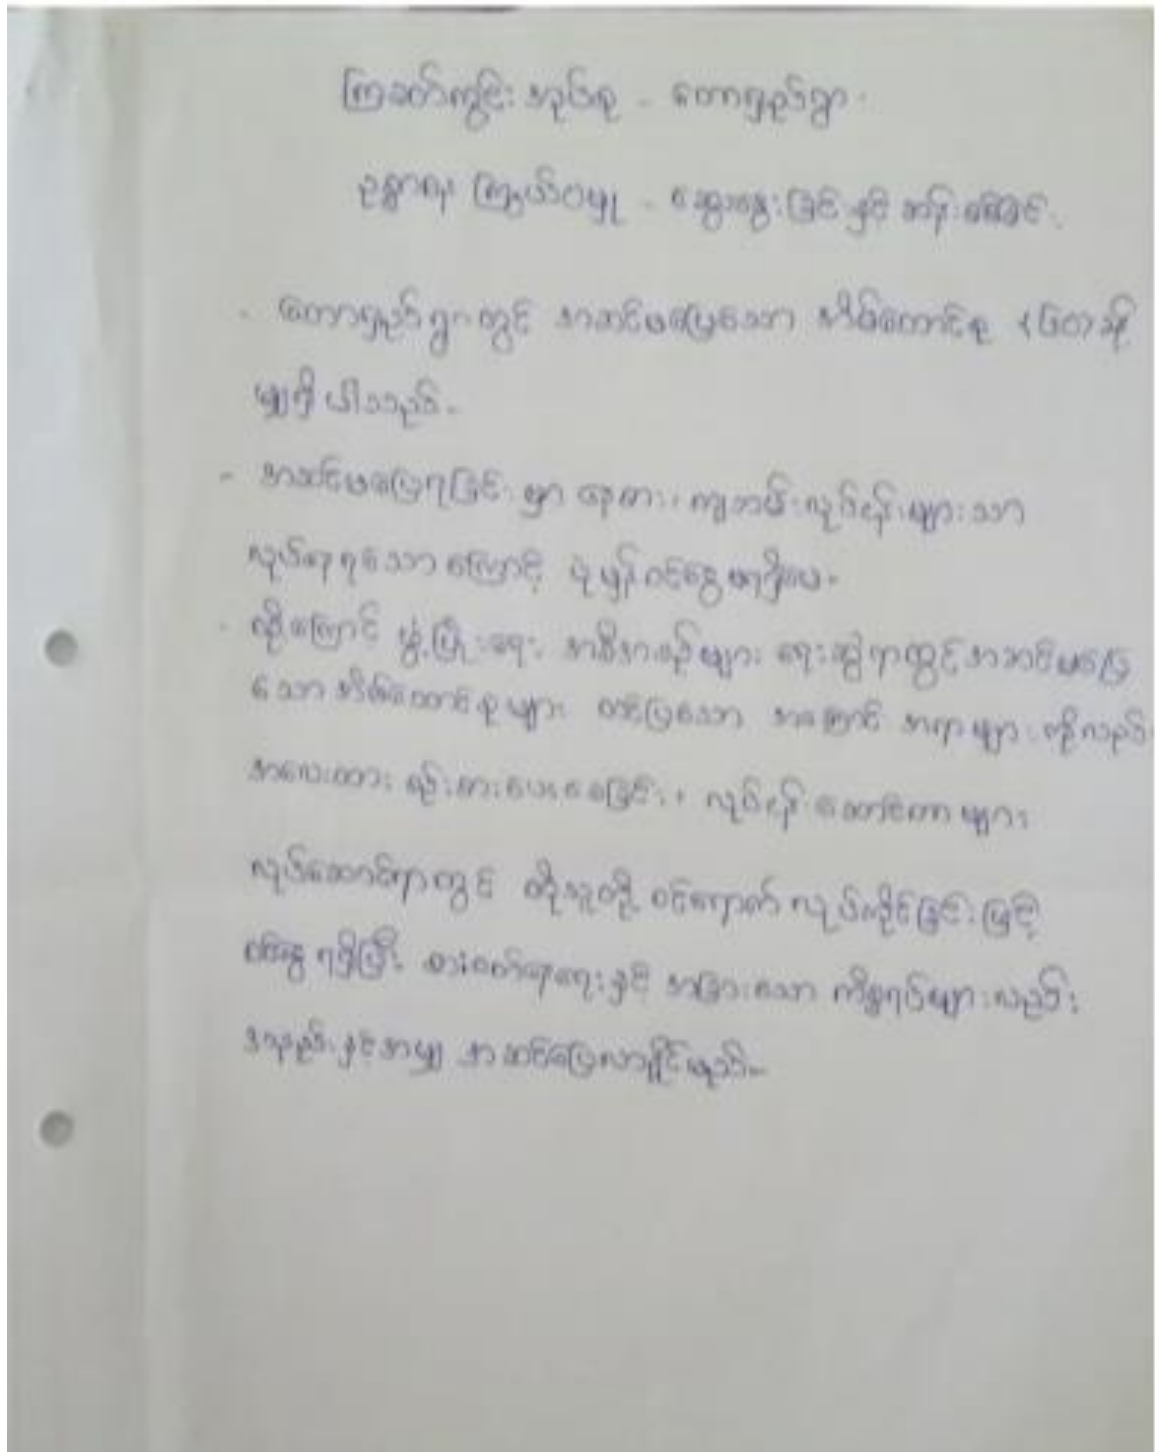 ကြခတ်ကွင်း အုပ်စု - တောရှည်ရွာ
ဥစ္စာဓန ကြွယ်ဝမှု - ဆွေးနွေးခြင်းနှင့်
- တောရှည်ရွာတွင် အဆင်မပြေသော အိမ်ထောင်စု
မျှရှိပါသည်။
- အဆင်မပြေရခြင်းမှာ နေ့စား၊ ကျဘမ်းလုပ်ငန်းများသာ
လုပ်နေရသောကြောင့် ပုံမှန်ဝင်ငွေမရှိပေ။
- ထို့ကြောင့် ဖွံ့ဖြိုးရေး အစီအစဉ်များ ရေးဆွဲရာတွင် အဆင်မပြေ
သော အိမ်ထောင်စုများ တင်ပြသော အကြောင်အရာများကိုလည်း
အလေးထား စဉ်းစားပေးစေခြင်း၊ လုပ်ငန်းဆောင်တာများ
လုပ်ဆောင်ရာတွင် ထိုသူတို့ ဝင်ရောက်လုပ်ကိုင်ခြင်းဖြင့်
ဝင်ငွေရရှိပြီး စားဝတ်နေရေးနှင့် အခြားသော ကိစ္စရပ်များလည်း
အနည်းနှင့်အမျှ အဆင်ပြေလာနိုင်မည်။